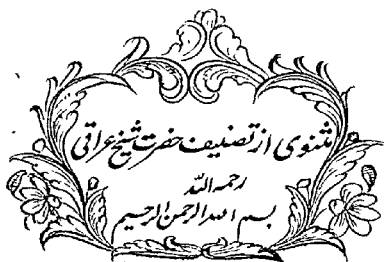 مثنوی از تصنیف حضرت شیخ عراقی
رحمه الله
بسم الله الرحمن الرحیم